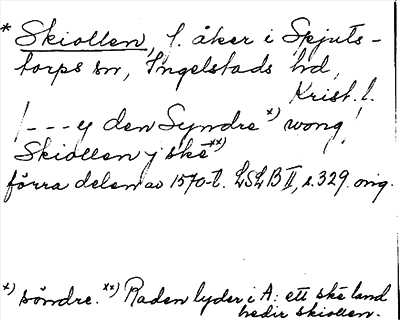 * Skiollen, f. åker i Spjuts-
torps sn, Ingelstads hd,
Krist. l.
/--- y den Syndre x) wong,
Skiollen j ske xx)
förra delen av 1570-t. LSLB II, s. 329. orig.
x) söndre. xx) Raden lyder i A: ett ske land
hedir skiollen.